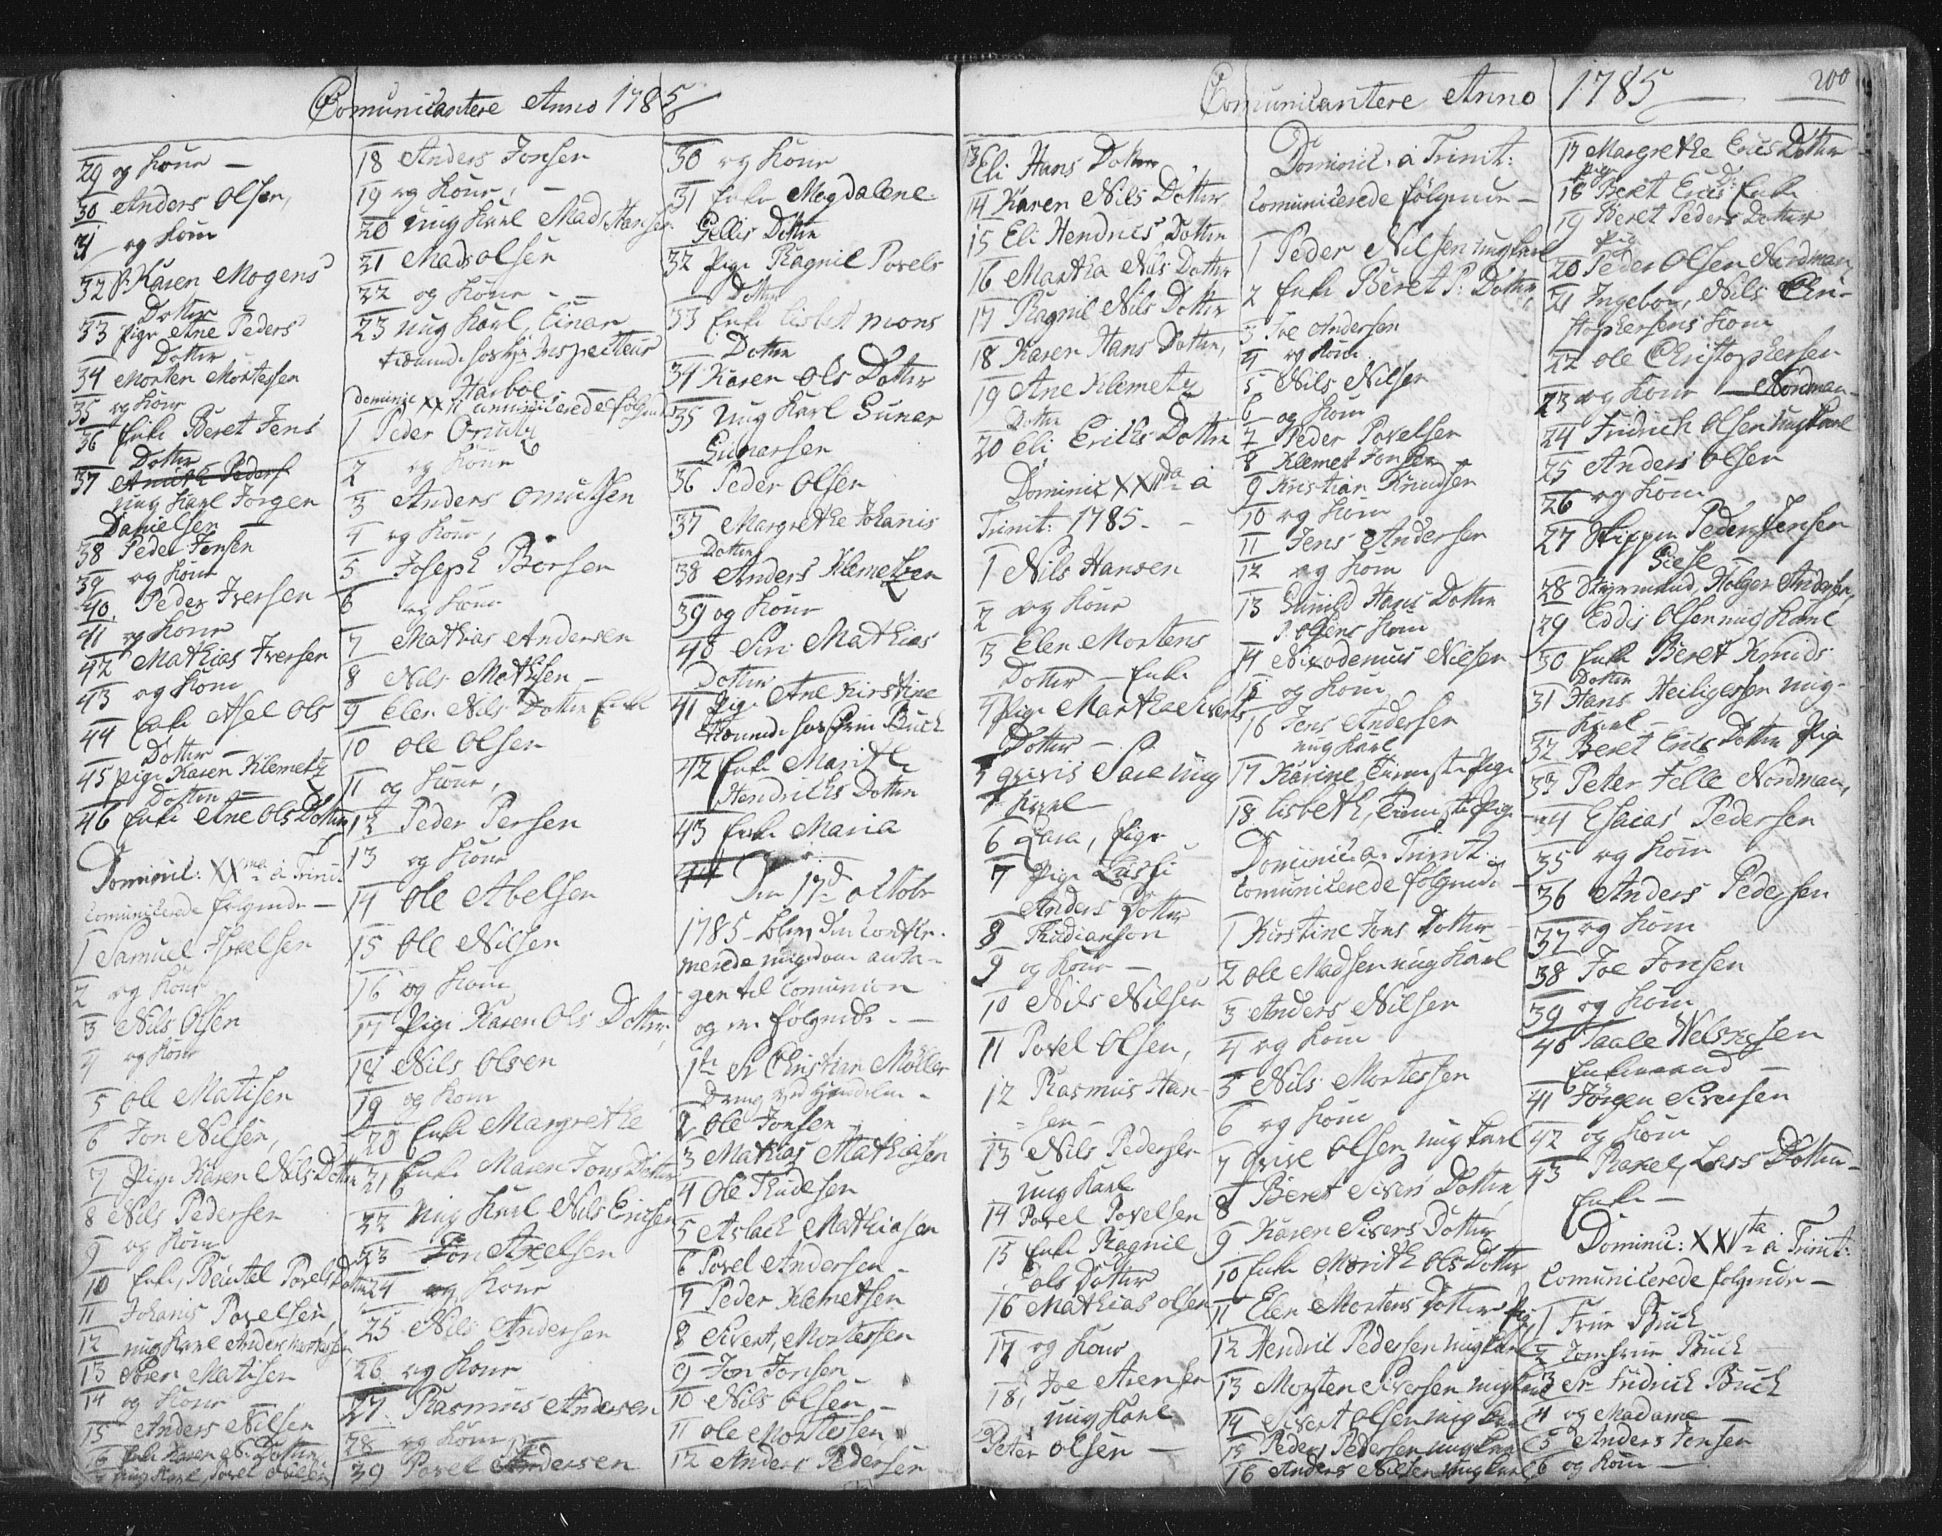 Comunicantere Anno 1785
29 og Kone —
30 Anders Olsen,
31 og Kone
32 P. Karen Mogens
Dotter
33 Pige Ane Peders
Dotter
34 Morten Mortessen
35 og Kone
36 Enke Beret Jens
Dotter
37
ung Karl Jørgen
Danielsen —
38 Peder Jensen
39 og Kone
40 Peder Iversen
41 og Kone
42 Mathias Iversen
43 og Kone
44 Enke Asel Ols
Dotter —
45 Pige Karen Klemetz
Dotter —
46 Enke Ane Ols Dotter
Dominic: XXma a Trinit.
Comunicerede følgende —
1 Samuel Israelsen
2 og Kone
3 Nils Olsen
4 og Kone
5 Ole Matisen
6 Jon Nilsen,
7 Pige Karen Nils Dotter
8 Nils Pedersen
9 og Kone
10 Enke, Povels Dotter
11 Johanis Povelsen,
12 ung Karl Anders Mortessen
13 Sören Matisen
14 og Kone
15 Anders Nilsen
16 Enke Karen N. Dotter
17 ung Karl Povel
18 Anders Jonsen
19 og Kone, —
20 ung Karl Mads Hansen
21 Mads Olsen
22 og Kone - -
23 ung Karl, Einar
tienende hos Hr Inspecteur
Harboe
Dominic XX comunicerede følgende
1 Peder
2 og Kone
3 Anders Omutsen
4 og Kone,
5 Joseph Børsen
6 og Kone
7 Mathias Andersen
8 Nils Mathisen —
9 Elen Nils Dotter Enke
10 Ole Olsen
11 og Kone,
12 Peder Persen
13 og Kone
14 Ole Abelsen
15 Ole Nilsen
16 og Kone
17 Pige Karen Ols Dotter
18 Nils Olsen
19 og Kone
20 Enke Margrethe
21 Enke Maren Jons Dotter
22 ung Karl Nils Ericsen
23 Jon Axelsen
24 og Kone
25 Nils Andersen
26 og Kone
27 Rasmus Andersen
28 og Kone
39 Povel Andersen
30 og Kone
31 Enke Magdalene
Gellis Dotter
32 Pige Ragnil Povels
Dotter
33 Enke Lisbet Mons
Dotter
34 Karen Ols Dotter
35 ung Karl Gunar
Gunarsen
36 Peder Olsen
37 Margrethe Johanis
Dotter
38 Anders Klemetsen
39 og Kone
40 Siri Mathias
Dotter
41 Pige Ane Kirstine
tienende hos Frue Buch
42 Enke Marith
Hendrichs Dotter
43 Enke Maria
44 Den 17d October
1785 blev den Confir-
merede ungdom anta-
gen til Comunion
og er følgende - —
1te Sr Christian Möller
Dreng ved Handelen -
2 Ole Jonsen
3 Mathias Mathiasen
4 Ole Thudesen
5 Aslach Mathiasen
6 Povel Andersen —
7 Peder Klemetsen
8 Sivert, Mortessen
9 Jon Jonsen —
10 Nils Olsen —
11 Ole Mortessen
12 Anders Pedersen
Comunicantere Anno 1785 —
200
13 Eli Hans Dotter
14 Karen Nils Dotter
15 Eli Hendrics Dotter
16 Martha Nils Dotter
17 Ragnil Nils Dotter
18 Karen Hans Dotter,
19 Ane Klemetz
Dotter
20 Eli Erichs Dotter
Dominic XXIIda a
Trinit: 1785 - -
1 Nils Hansen
2 og Kone
3 Elen Mortens
Dotter — Enke
4 Pige Martha Siverts
Dotter —
5 ung
Karl —
6 Lara, Pige
7 Pige
Anders Dotter
8
9 og Kone —
10 Nils Nilsen
11 Povel Olsen,
12 Rasmus Han-
- sen -
13 Nils Pedersen
ung Karl
14 Povel Povelsen
15 Enke Ragnil
Ols Dotter
16 Mathias Olsen
17 og Kone
18, Joe
ung Karl
19 Peter Olsen —
Dominic: a Trinit:
Comunicerede følgende —
1 Peder Nilsen ung Karl
2 Enke Beret P: Dotter
3 Joe Andersen
4 og Kone
5 Nils Nilsen
6 og Kone
7 Peder Povelsen
8 Klemet Jonsen
9 Kristian Knudsen
10 og Kone
11 Jens Andersen
12 og Kone
13 Gunild Hans Dotter
P. Olsens Kone
14 Nicodemus Nilsen
15 og Kone
16 Jens Andersen
ung Karl
17 Karine, Pige
18 Lisbeth, Pige
Dominic. a. Trinit.
Comunicerede følgende —
1 Kirstine Jons Dotter
2 Ole Madsen ung Karl
3 Anders Nilsen
4 og Kone
5 Nils Mortessen
6 og Kone
7 Olsen ung Karl
8 Beret Sivers Dotter
9 Karen Sivers Dotter
10 Enke Marith Ols Dotter
11 Elen Mortens Dotter Pige
12 Hendric Pedersen ung Karl
13 Morten Siversen ung Karl
14 Sivert Olsen ung Karl
15 Peder Pedersen ung Karl
16 Anders Nilsen ung Karl
17 Margrethe Erics Dotter
Pige
18 Beret Erics D: Enke
19 Beret Peders Dotter
Pige
20 Peder Olsen Nordman,
21 Ingebor, Nils Chri-
stophersens Kone
22 Ole Christophersen
23 og Kone — Nordman —
24 Fridrich Olsen ung Karl
25 Anders Olsen
26 og Kone
27 Skipper Peder Jensen
Giese —
28 Styrmand, Holger Andersen,
29 Eddis Olsen ung Karl
30 Enke Beret Knuds
Dotter
31 Hans Heiligersen ung-
Karl —
32 Beret Erics Dotter Pige
33 Peter Felle Nordman,
34 Esaias Pedersen
35 og Kone
36 Anders Pedersen
37 og Kone
38 Joe Jonsen
39 og Kone
40
Enkemand —
41 Jörgen Siversen
42 og Kone
43 Rakel Lars Dotter —
Enke —
Dominic: XXVta a Trinit:
Comunicerede følgende —
1 Frue Buch
2 Jomfrue Buch —
3 Sr Fridrich Buch
4 og Madame —
5 Anders Jonsen
6 og Kone —